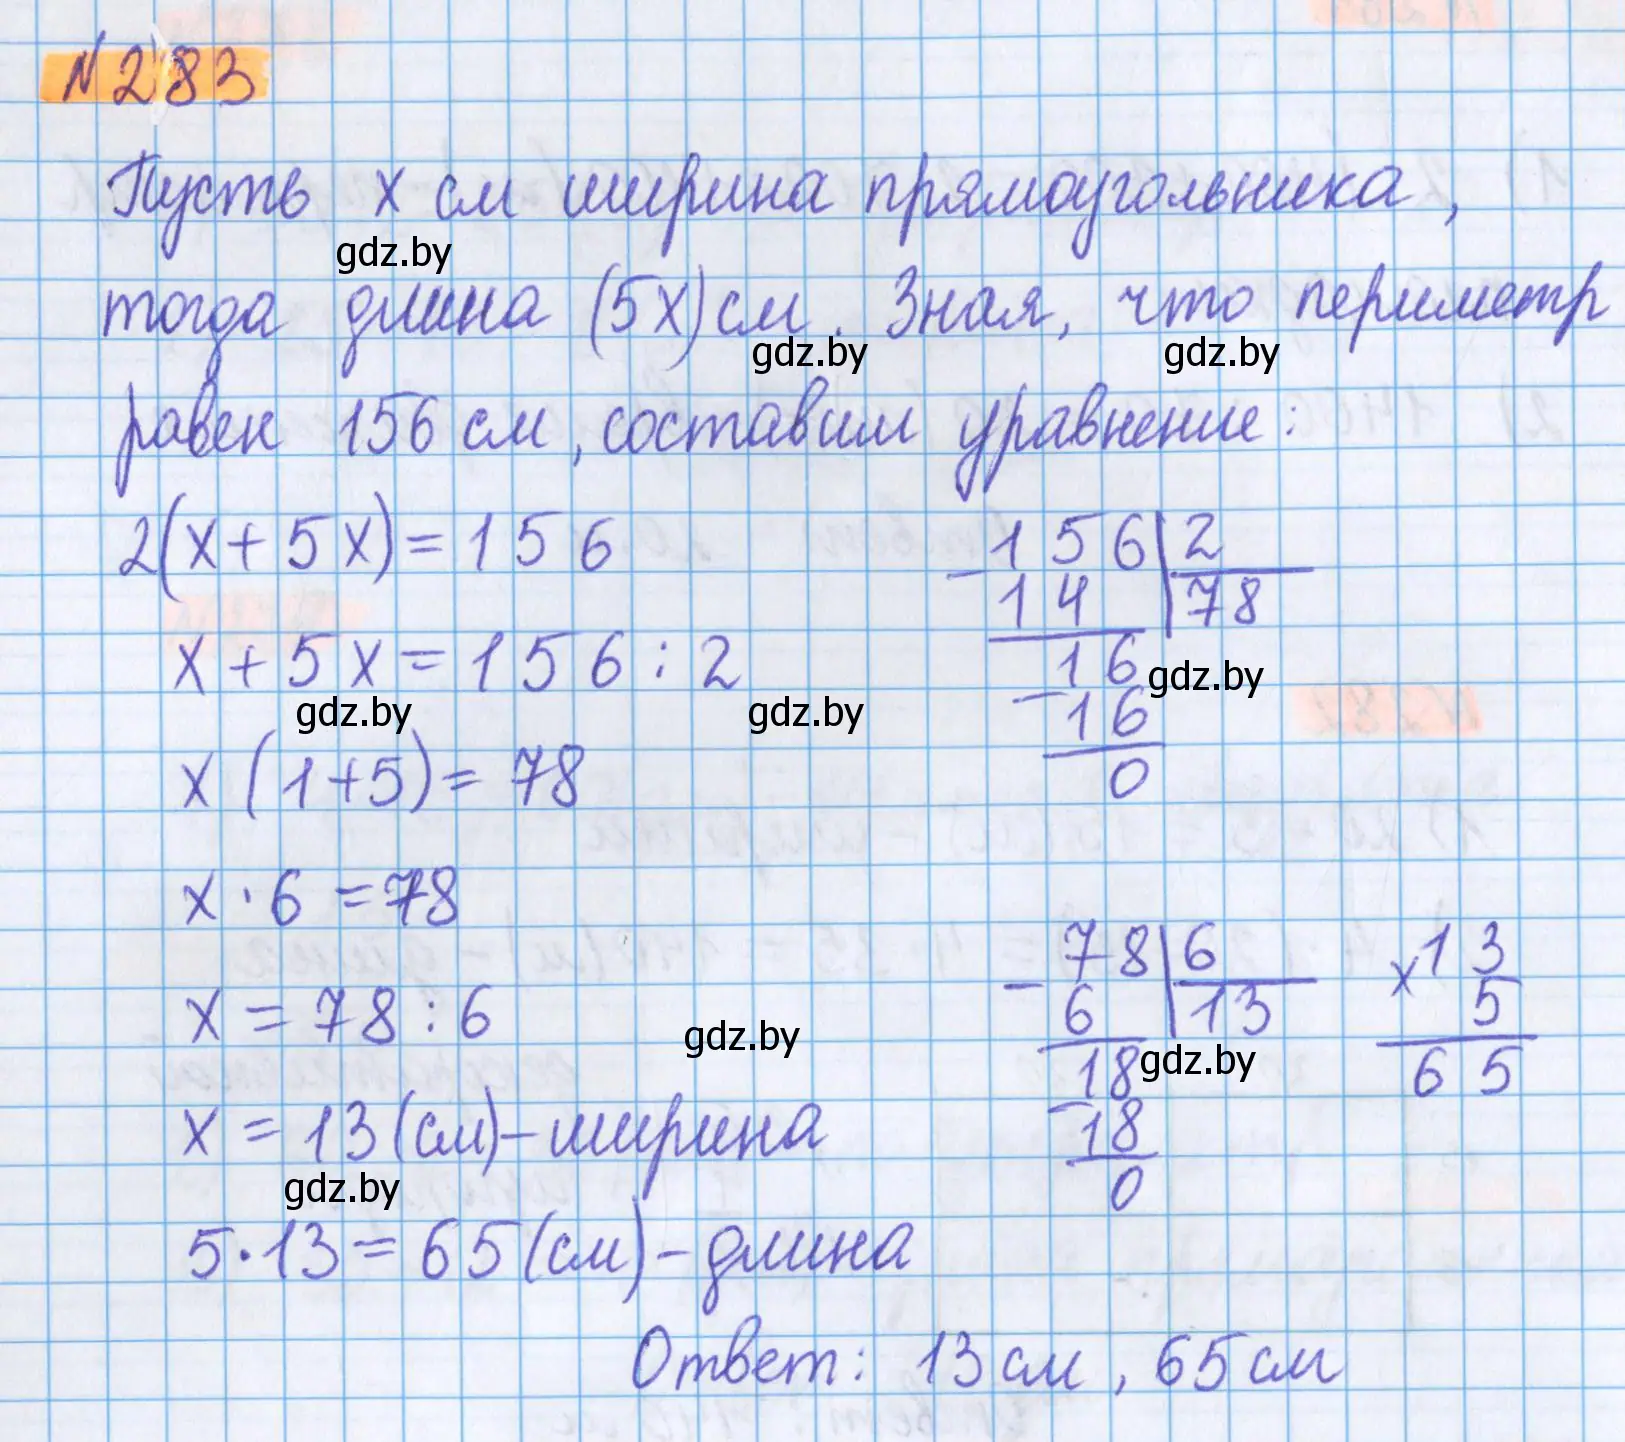 N283
Пусть x см ширина прямоугольника,
gdz.by
тогда длина (5x) см. Зная, что периметр
gdz.by gdz.by
равен 156 см, составим уравнение:
2(x+5x)=156
x+5x=156:2
gdz.by gdz.by
x(1+5)=78
x·6=78
x=78:6
gdz.by
x=13(см)-ширина
gdz.by
5·13=65(см)-длина
156|2
-14 |78
16 gdz.by
-16
0
78|6
-6 |13
18 gdz.by
-18
0
13
x 5
65
Ответ: 13 см, 65 см